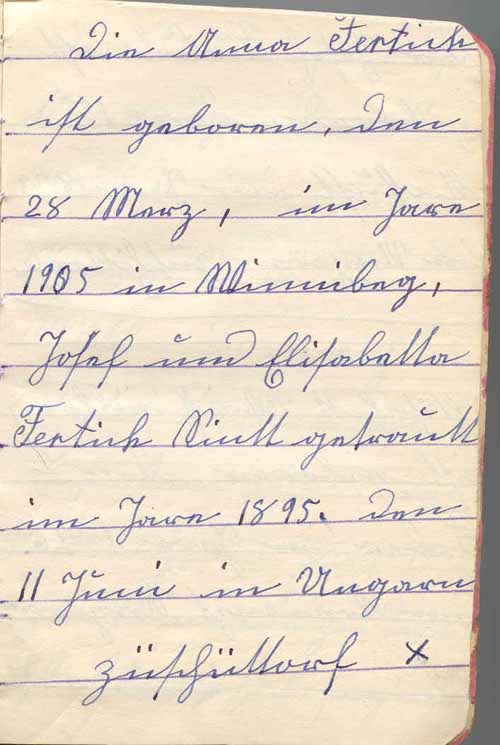 Die Anna Fertich
ist geboren, den
28 Merz, im Jare
1905 in Winnibeg,
Josef und Elisabetta
Fertich Sintt getrautt
im Jare 1895. den
11 Juni in Ungarn
züschüttorf x